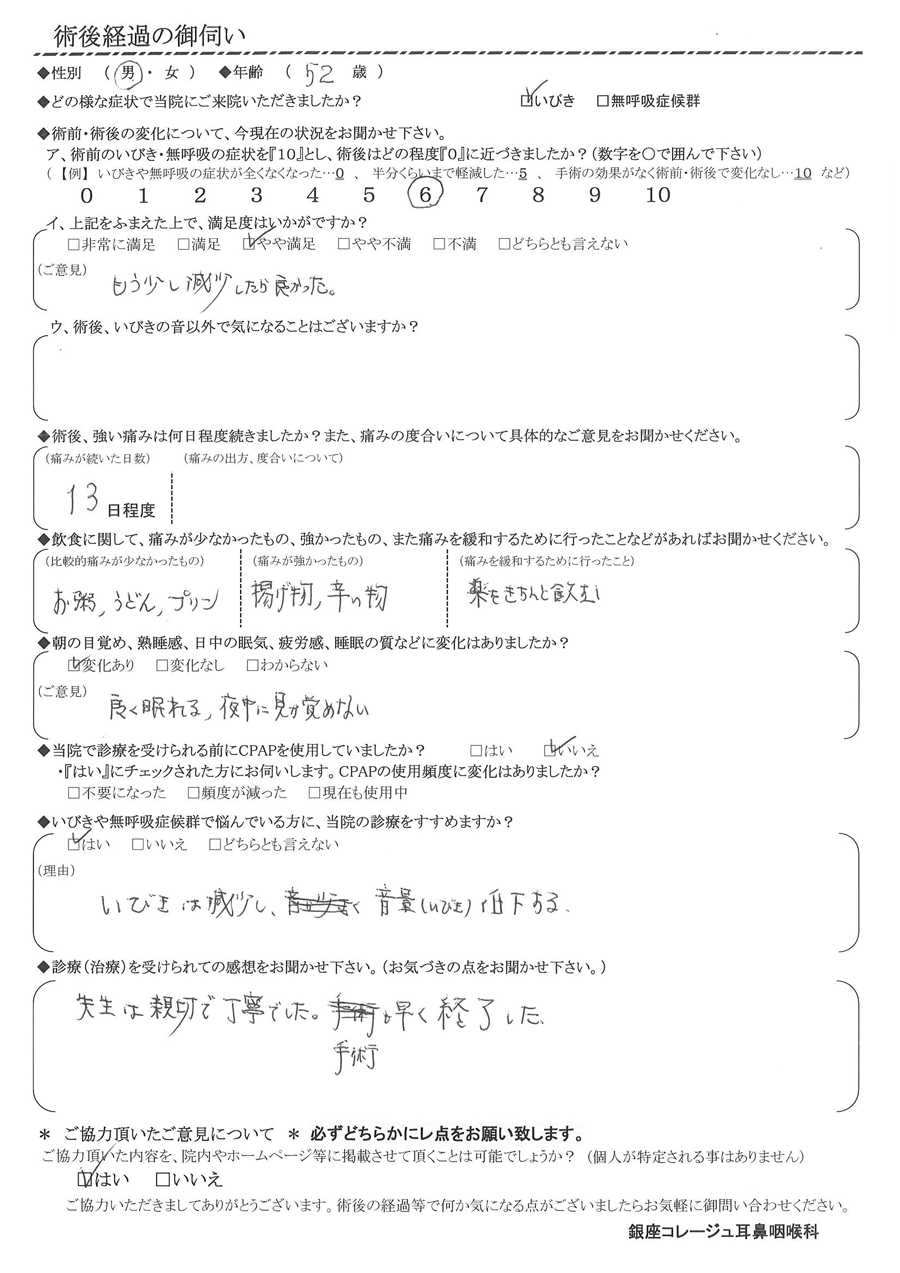 術後経過の御伺い
◆性別 （ 男 ・ 女 ） ◆年齢 （ 52 歳 ）
◆どの様な症状で当院にご来院いただきましたか？ ☑いびき □無呼吸症候群
◆術前・術後の変化について、今現在の状況をお聞かせ下さい。
ア、術前のいびき・無呼吸の症状を『10』とし、術後はどの程度『0』に近づきましたか？（数字を〇で囲んで下さい）
（ 【例】 いびきや無呼吸の症状が全くなくなった…0 、 半分くらいまで軽減した…5 、 手術の効果がなく術前・術後で変化なし…10 など）
0 1 2 3 4 5 6 7 8 9 10
イ、上記をふまえた上で、満足度はいかがですか？
□非常に満足 □満足 ☑やや満足 □やや不満 □不満 □どちらとも言えない
（ご意見）
もう少し減少したら良かった。
ウ、術後、いびきの音以外で気になることはございますか？
◆術後、強い痛みは何日程度続きましたか？また、痛みの度合いについて具体的なご意見をお聞かせください。
（痛みが続いた日数） （痛みの出方、度合いについて）
13 日程度
◆飲食に関して、痛みが少なかったもの、強かったもの、また痛みを緩和するために行ったことなどがあればお聞かせください。
（比較的痛みが少なかったもの） （痛みが強かったもの） （痛みを緩和するために行ったこと）
お粥, うどん, プリン 揚げ物, 辛い物 薬をきちんと飲む
◆朝の目覚め、熟睡感、日中の眠気、疲労感、睡眠の質などに変化はありましたか？
☑変化あり □変化なし □わからない
（ご意見）
良く眠れる, 夜中に目が覚めない
◆当院で診療を受けられる前にCPAPを使用していましたか？ □はい ☑いいえ
・『はい』にチェックされた方にお伺いします。CPAPの使用頻度に変化はありましたか？
□不要になった □頻度が減った □現在も使用中
◆いびきや無呼吸症候群で悩んでいる方に、当院の診療をすすめますか？
☑はい □いいえ □どちらとも言えない
（理由）
いびきは減少し、音量(いびき)低下する.
◆診療（治療）を受けられての感想をお聞かせ下さい。（お気づきの点をお聞かせ下さい。）
先生は親切で丁寧でした。手術も早く終了した.
手術
＊ ご協力頂いたご意見について ＊ 必ずどちらかにレ点をお願い致します。
ご協力頂いた内容を、院内やホームページ等に掲載させて頂くことは可能でしょうか？ （個人が特定される事はありません）
☑はい □いいえ
ご協力いただきましてありがとうございます。術後の経過等で何か気になる点がございましたらお気軽に御問い合わせください。
銀座コレージュ耳鼻咽喉科